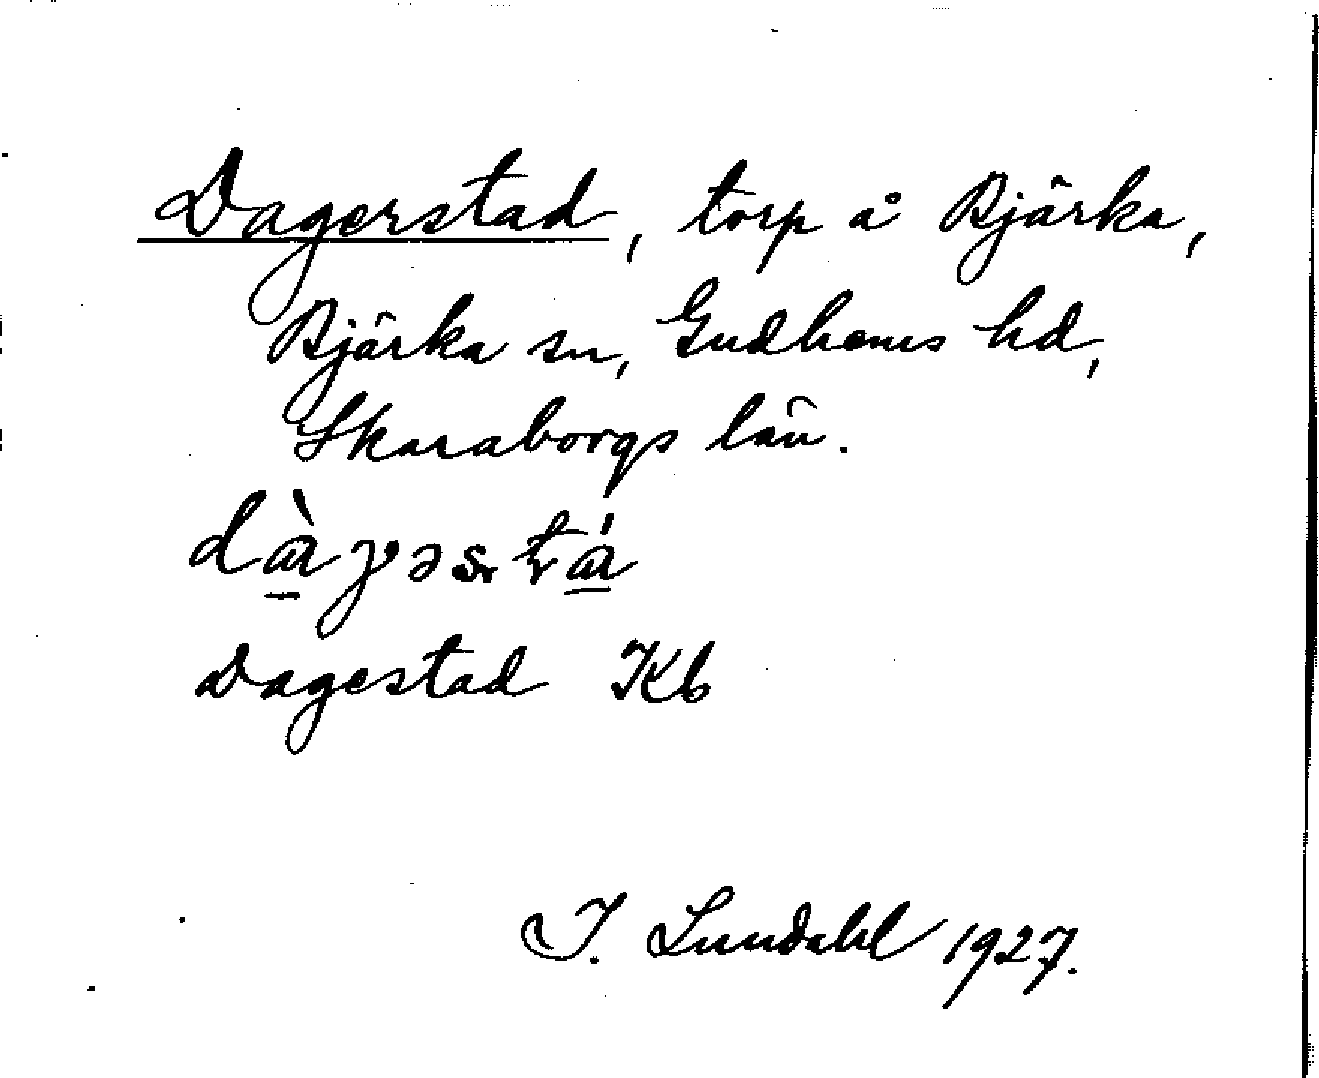 Dagerstad, torp å Bjärka,
Bjärka sn, Gudhems hd,
Skaraborgs län.
Dagestad Kb
I. Lundahl 1927.